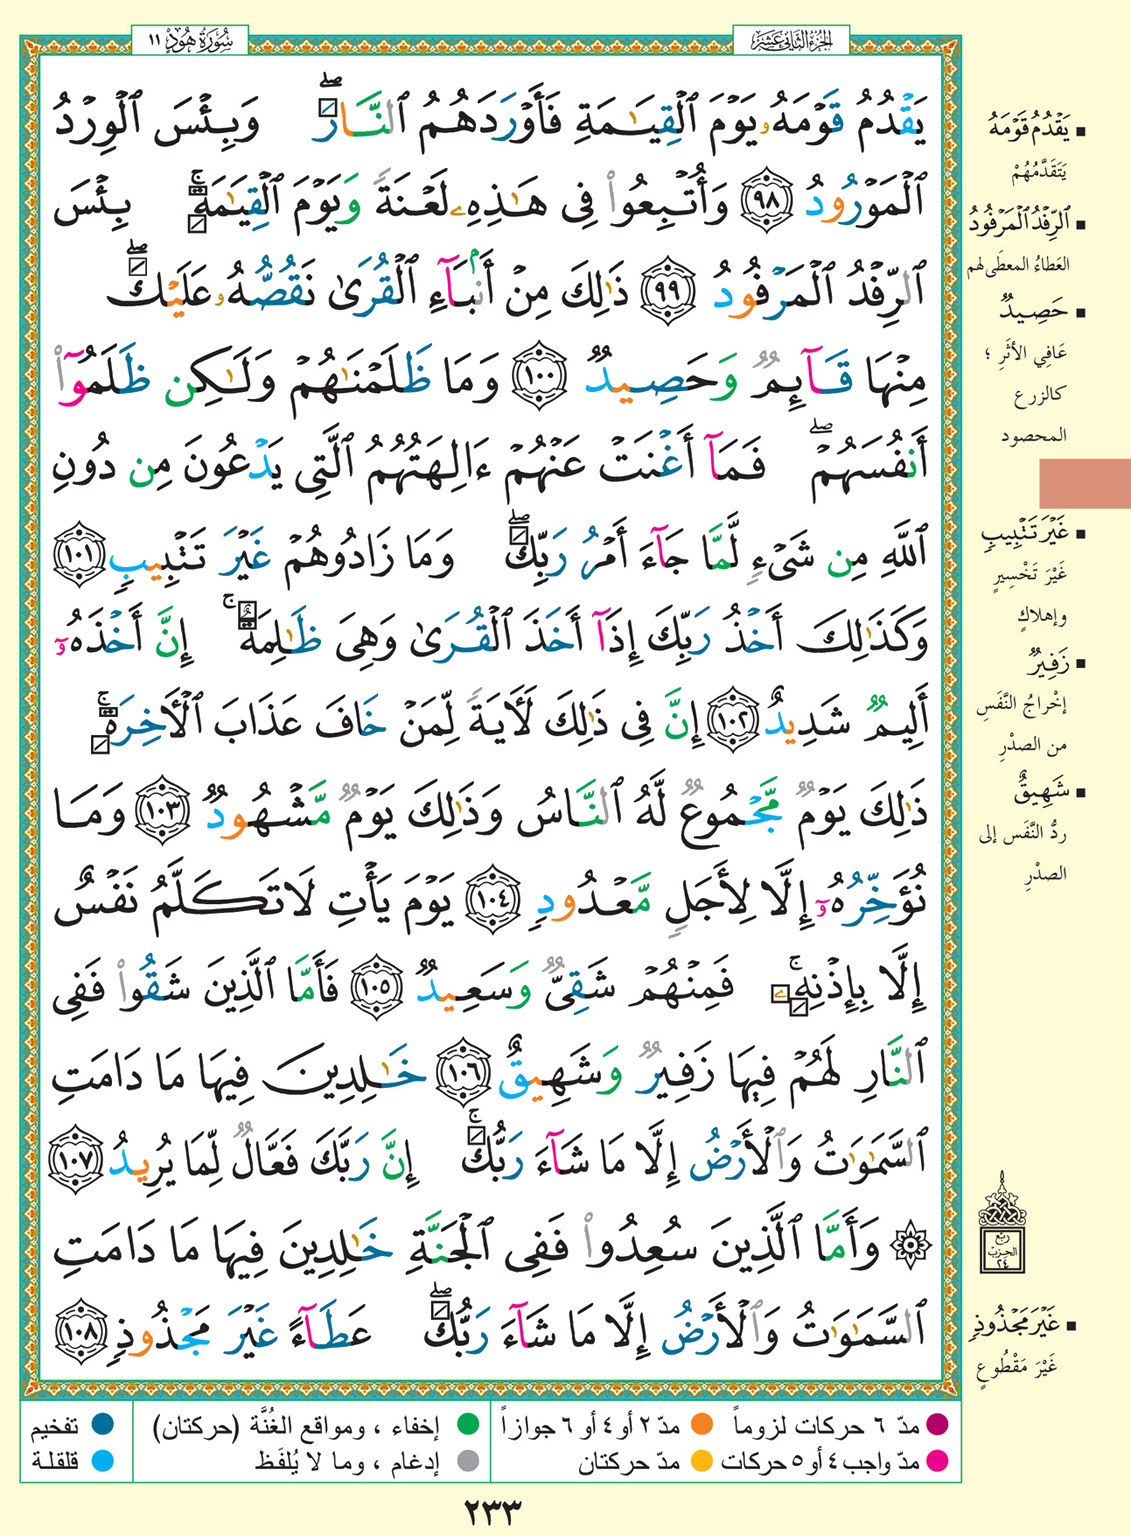 الجزء الثاني عشر
سورة هود ١١
يَقْدُمُ قَوْمَهُۥ يَوْمَ ٱلْقِيَـٰمَةِ فَأَوْرَدَهُمُ ٱلنَّارَ ۖ وَبِئْسَ ٱلْوِرْدُ
ٱلْمَوْرُودُ ٩٨ وَأُتْبِعُوا۟ فِى هَـٰذِهِۦ لَعْنَةً وَيَوْمَ ٱلْقِيَـٰمَةِ ۚ بِئْسَ
ٱلرِّفْدُ ٱلْمَرْفُودُ ٩٩ ذَٰلِكَ مِنْ أَنۢبَآءِ ٱلْقُرَىٰ نَقُصُّهُۥ عَلَيْكَ ۖ
مِنْهَا قَآئِمٌ وَحَصِيدٌ ١٠٠ وَمَا ظَلَمْنَـٰهُمْ وَلَـٰكِن ظَلَمُوٓا۟
أَنفُسَهُمْ ۖ فَمَآ أَغْنَتْ عَنْهُمْ ءَالِهَتُهُمُ ٱلَّتِى يَدْعُونَ مِن دُونِ
ٱللَّهِ مِن شَىْءٍ لَّمَّا جَآءَ أَمْرُ رَبِّكَ ۖ وَمَا زَادُوهُمْ غَيْرَ تَتْبِيبٍ ١٠١
وَكَذَٰلِكَ أَخْذُ رَبِّكَ إِذَآ أَخَذَ ٱلْقُرَىٰ وَهِىَ ظَـٰلِمَةٌ ۚ إِنَّ أَخْذَهُۥٓ
أَلِيمٌ شَدِيدٌ ١٠٢ إِنَّ فِى ذَٰلِكَ لَـَٔايَةً لِّمَنْ خَافَ عَذَابَ ٱلْـَٔاخِرَةِ ۚ
ذَٰلِكَ يَوْمٌ مَّجْمُوعٌ لَّهُ ٱلنَّاسُ وَذَٰلِكَ يَوْمٌ مَّشْهُودٌ ١٠٣ وَمَا
نُؤَخِّرُهُۥٓ إِلَّا لِأَجَلٍ مَّعْدُودٍ ١٠٤ يَوْمَ يَأْتِ لَا تَكَلَّمُ نَفْسٌ
إِلَّا بِإِذْنِهِۦ ۚ فَمِنْهُمْ شَقِىٌّ وَسَعِيدٌ ١٠٥ فَأَمَّا ٱلَّذِينَ شَقُوا۟ فَفِى
ٱلنَّارِ لَهُمْ فِيهَا زَفِيرٌ وَشَهِيقٌ ١٠٦ خَـٰلِدِينَ فِيهَا مَا دَامَتِ
ٱلسَّمَـٰوَٰتُ وَٱلْأَرْضُ إِلَّا مَا شَآءَ رَبُّكَ ۚ إِنَّ رَبَّكَ فَعَّالٌ لِّمَا يُرِيدُ ١٠٧
۞ وَأَمَّا ٱلَّذِينَ سُعِدُوا۟ فَفِى ٱلْجَنَّةِ خَـٰلِدِينَ فِيهَا مَا دَامَتِ
ٱلسَّمَـٰوَٰتُ وَٱلْأَرْضُ إِلَّا مَا شَآءَ رَبُّكَ ۖ عَطَآءً غَيْرَ مَجْذُوذٍ ١٠٨
يَقْدُمُ قَوْمَهُ
يَتَقَدَّمُهُمْ
ٱلرِّفْدُ ٱلْمَرْفُودُ
العَطاءُ المعطَى لهم
حَصِيدٌ
عَافِي الأثَرِ ؛
كالزرع
المحصود
غَيْرَ تَتْبِيبٍ
غَيْرَ تَخْسِيرٍ
وإهلاكٍ
زَفِيرٌ
إخْراجُ النَّفَسِ
من الصدْرِ
شَهِيقٌ
ردُّ النَّفَس إلى
الصدْرِ
ربع
الحزب
٢٤
غَيْرَ مَجْذُوذٍ
غَيْرَ مَقْطُوعٍ
مدّ ٦ حركات لزوماً
مدّ ٢ أو ٤ أو ٦ جوازاً
إخفاء ، ومواقع الغُنَّة (حركتان)
تفخيم
مدّ واجب ٤ أو ٥ حركات
مدّ حركتان
إدغام ، وما لا يُلفَظ
قلقلة
٢٣٣